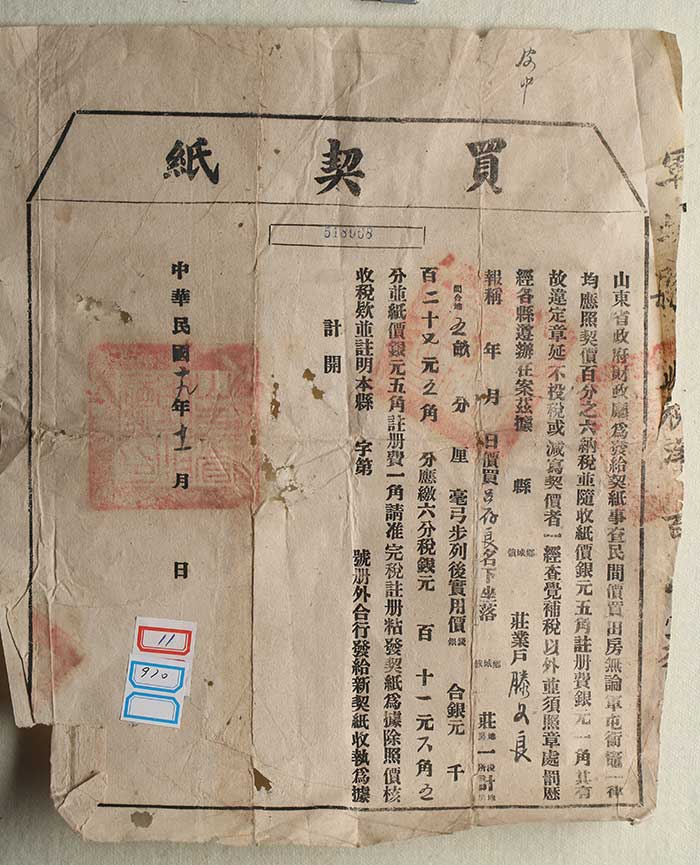 買契紙
518008
山東省政府財政廳為發給契紙事查民間價買田房無論軍屯衛竈一律
均應照契價百分之六納稅並隨收紙價銀元五角註册費銀元一角其有
故違定章延不投稅或減寫契價者一經查覺補稅以外並須照章處罰歷
經各縣遵辦在案茲據 縣 鄉城鎮 莊業戶滕文良
報稱 年 月 日價買 存良名下坐落 鄉城鎮 莊 一段 計
畝 分 厘 毫弓步列後實用價 合銀元 千
百二十 元 角 分應繳六分稅銀元 百十一元 角
分並紙價銀元五角註册費一角請准完稅註册粘發契紙為據除照價核
收稅欵並註明本縣 字第 號册外合行發給新契紙收執為據
計開
中華民國十九年十一月 日
11
920